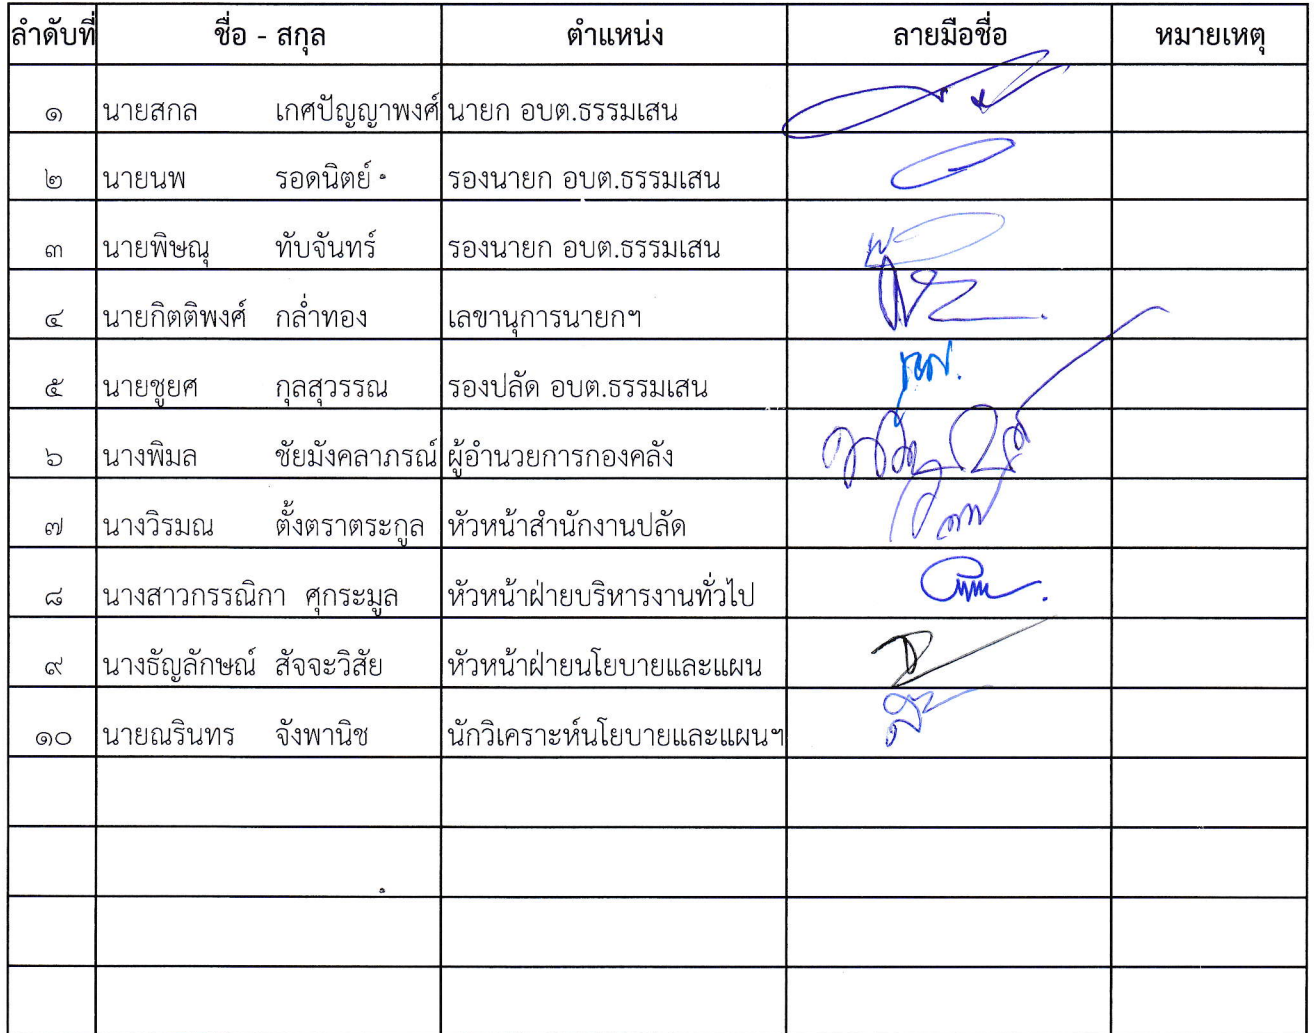 ลำดับที่ ชื่อ - สกุล ตำแหน่ง ลายมือชื่อ หมายเหตุ
๑ นายสกล เกศปัญญาพงศ์ นายก อบต.ธรรมเสน
๒ นายนพ รอดนิตย์ รองนายก อบต.ธรรมเสน
๓ นายพิษณุ ทับจันทร์ รองนายก อบต.ธรรมเสน
๔ นายกิตติพงศ์ กล่ำทอง เลขานุการนายกฯ
๕ นายชูยศ กุลสุวรรณ รองปลัด อบต.ธรรมเสน
๖ นางพิมล ชัยมังคลาภรณ์ ผู้อำนวยการกองคลัง
๗ นางวิรมณ ตั้งตราตระกูล หัวหน้าสำนักงานปลัด
๘ นางสาวกรรณิกา ศุกระมูล หัวหน้าฝ่ายบริหารงานทั่วไป
๙ นางธัญลักษณ์ สัจจะวิสัย หัวหน้าฝ่ายนโยบายและแผน
๑๐ นายณรินทร จังพานิช นักวิเคราะห์นโยบายและแผนฯ